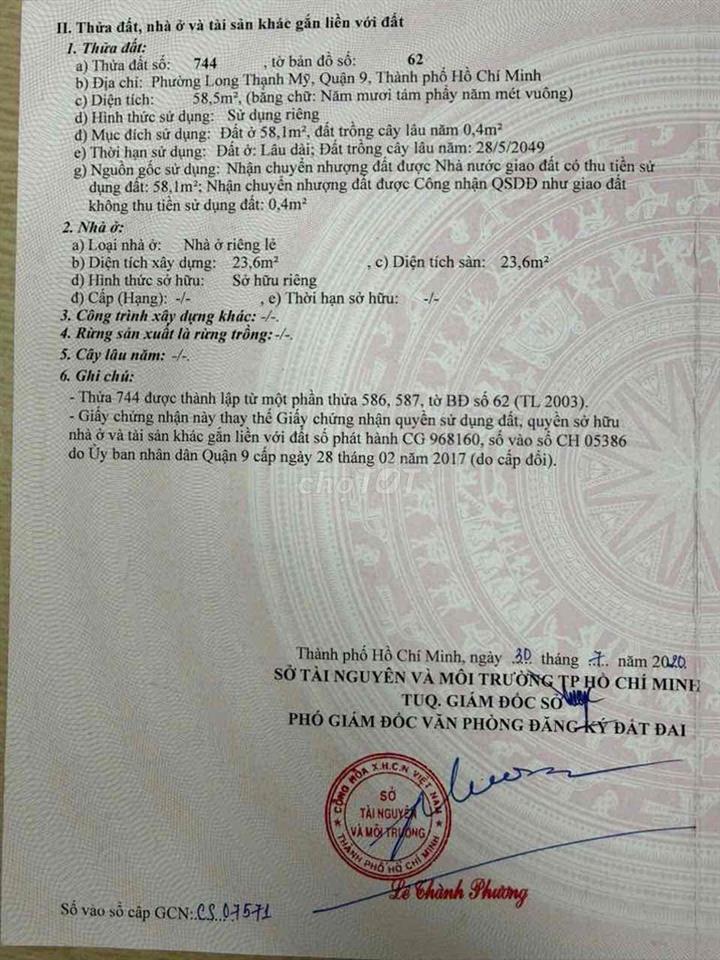 II. Thửa đất, nhà ở và tài sản khác gắn liền với đất
1. Thửa đất:
a) Thửa đất số: 744 , tờ bản đồ số: 62
b) Địa chỉ: Phường Long Thạnh Mỹ, Quận 9, Thành phố Hồ Chí Minh
c) Diện tích: 58,5m², (bằng chữ: Năm mươi tám phẩy năm mét vuông)
d) Hình thức sử dụng: Sử dụng riêng
đ) Mục đích sử dụng: Đất ở 58,1m², đất trồng cây lâu năm 0,4m²
e) Thời hạn sử dụng: Đất ở: Lâu dài; Đất trồng cây lâu năm: 28/5/2049
g) Nguồn gốc sử dụng: Nhận chuyển nhượng đất được Nhà nước giao đất có thu tiền sử
dụng đất: 58,1m²; Nhận chuyển nhượng đất được Công nhận QSDĐ như giao đất
không thu tiền sử dụng đất: 0,4m²
2. Nhà ở:
a) Loại nhà ở: Nhà ở riêng lẻ
b) Diện tích xây dựng: 23,6m² , c) Diện tích sàn: 23,6m²
d) Hình thức sở hữu: Sở hữu riêng
đ) Cấp (Hạng): -/- , e) Thời hạn sở hữu: -/-
3. Công trình xây dựng khác: -/-.
4. Rừng sản xuất là rừng trồng: -/-.
5. Cây lâu năm: -/-.
6. Ghi chú:
- Thửa 744 được thành lập từ một phần thửa 586, 587, tờ BĐ số 62 (TL 2003).
- Giấy chứng nhận này thay thế Giấy chứng nhận quyền sử dụng đất, quyền sở hữu
nhà ở và tài sản khác gắn liền với đất số phát hành CG 968160, số vào sổ CH 05386
do Ủy ban nhân dân Quận 9 cấp ngày 28 tháng 02 năm 2017 (do cấp đổi).
choTỐT
Thành phố Hồ Chí Minh, ngày 30 tháng 7 năm 2020
SỞ TÀI NGUYÊN VÀ MÔI TRƯỜNG TP HỒ CHÍ MINH
TUQ. GIÁM ĐỐC SỞ
PHÓ GIÁM ĐỐC VĂN PHÒNG ĐĂNG KÝ ĐẤT ĐAI
CỘNG HÒA X.H.C.N VIỆT NAM
SỞ
TÀI NGUYÊN
VÀ MÔI TRƯỜNG
THÀNH PHỐ HỒ CHÍ MINH
Lê Thành Phương
Số vào sổ cấp GCN: CS 07571